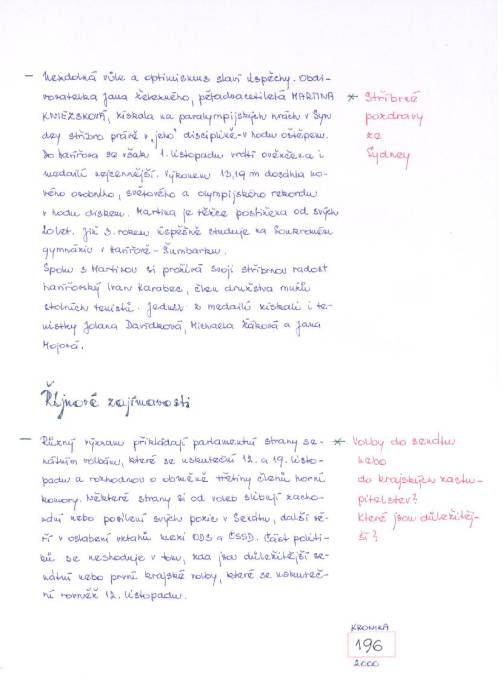 – Nezdolná vůle a optimismus slaví úspěchy. Obdi-
vovatelka Jana Železného, pětadvacetiletá MARTINA
KNIEZSKOVÁ, získala na paralympijských hrách v Syn-
dey stříbro právě v "jeho" disciplíně - v hodu oštěpem.
Do Havířova se však 1. listopadu vrátí ověnčena i
medailí nejcennější. Výkonem 13,19 m dosáhla no-
vého osobního, světového a olympijského rekordu
v hodu diskem. Martina je těžce postižena od svých
20 let. Již 3. rokem úspěšně studuje na Soukromém
gymnáziu v Havířově - Šumbarku.
Spolu s Martinou si prožívá svoji stříbrnou radost
havířovský Ivan Karabec, člen družstva mužů
stolních tenistů. Jednu z medailí získali i te-
nistky Jolana Davídková, Michaela Žáková a Jana
Mojová.
* Stříbrné
pozdravy
ze
Sydney
Říjnové zajímavosti
– Různý význam přikládají parlamentní strany se-
nátním volbám, které se uskuteční 12. a 19. listo-
padu a rozhodnou o obměně třetiny členů horní
komory. Některé strany si od voleb slibují zacho-
vání nebo posílení svých pozic v Senátu, další vě-
ří v oslabení vztahů mezi ODS a ČSSD. Část politi-
ků se neshoduje v tom, zda jsou důležitější se-
nátní nebo první krajské volby, které se uskuteč-
ní rovněž 12. listopadu.
* Volby do senátu
nebo
do krajských zastu-
pitelstev?
Které jsou důležitěj-
ší?
KRONIKA
196
2000